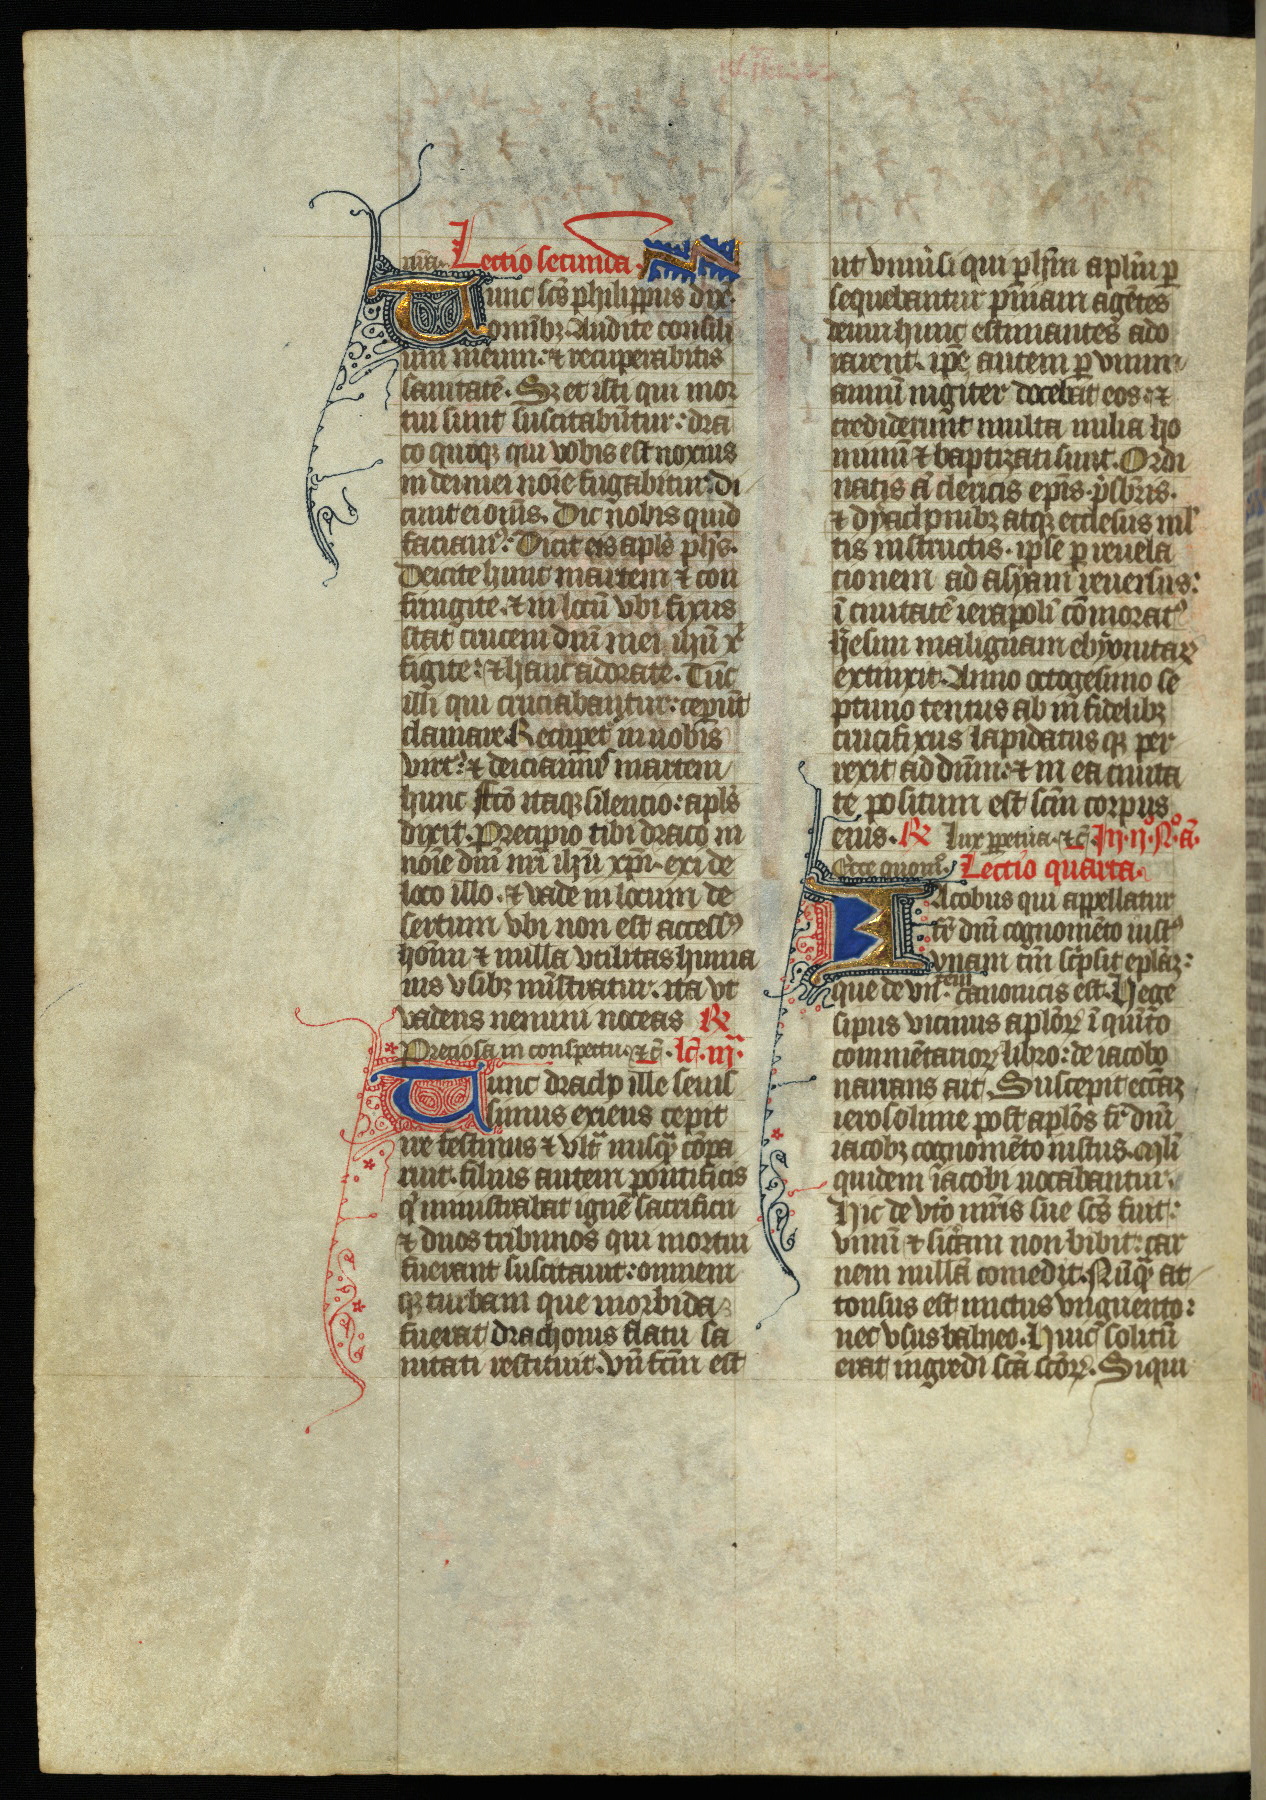 Lectio secunda.
Tunc scs philippus dix̄.
omnibꝫ. Audite consili
um meum: ⁊ recuperabitis
sanitatē. Sꝫ et isti qui mor
tui sunt suscitabūtur: dra
co quoqꝫ qui vobis est noxius
in dei mei noīe fugabitur. di
cunt ei om̄s. Dic nobis quid
faciamꝰ. Dicit eis apl̄s ph̄s.
Deicite hunc martem ⁊ con
fringite. ⁊ in locū vbi fixus
stat crucem dn̄i mei ih̄u xp̄i
figite: ⁊ hanc adorate. Tūc
illi qui cruciabantur: ceperūt
clamare. Recuperet in nobis
virtꝰ: ⁊ deiciamus martem
hunc. Fc̄o itaqꝫ silencio: apl̄s
dixit. Precipio tibi draco in
noīe dn̄i nr̄i ih̄u xp̄i. exi de
loco illo. ⁊ vade in locum de
sertum vbi non est accessꝰ
hoīm ⁊ nulla vtilitas huma
nis vsibꝫ ministratur. ita vt
vadens nemini noceas ℟
Preciosa in conspectu. ⁊c̄. lc̄. iij.
Tunc dracho ille seuis
simus exiens cepit
ire festinus ⁊ vlt̄ nusq̄ cōpa
ruit. filius autem pontificis
qͥ ministrabat ignē sacrificii
⁊ duos tribunos qui mortui
fuerant suscitauit: omnem
qꝫ turbam que morbida
fuerat drachonis flatu sa
nitati restituit. vn̄ fc̄m est
ut vniuersi qui persequebantur
sequebantur pn̄iam agētes
deum hunc estimantes ado
rarent. ip̄e autem per vnum
annū iugiter docebat eos: ⁊
crediderunt multa milia ho
minū ⁊ baptizati sunt. Ordi
natis a̅ clericis ep̄is. p̄sbr̄is.
⁊ dyachonibꝫ atqꝫ ecclesiis ml̄
tis instructis. ipse per reuela
cionem ad asyam reuersus:
ī ciuitatē ierapoli cōmoratꝰ
h̄esim malignam ebyonitaꝝ
extinxit. Anno octogesimo se
ptimo tentus ab infidelibꝫ
crucifixus lapidatusqꝫ per
rexit ad dn̄m: ⁊ in ea ciuita
te positum est scm̄ corpus
eius. ℟ lux perpetua. ⁊c̄. In. ijº. Nº. a̅.
Ecce quomº. Lectio quarta.
Iacobus qui appellatur
fr̄ dn̄i cognomēto iustꝰ
vnam tm̄ scͥpsit epl̄aꝫ:
que de vii.tem canonicis est. Hege
sipus vicinus aplōꝝ ī quīto
commētarioꝝ libro: de iacobo
narrans ait. Suscepit eccl̄aꝫ
ierosolime post aplōs fr̄ dn̄i
iacobꝫ cognomēto iustus. Ml̄ti
quidem iacobi uocabantur.
Hic de vt̊o mr̄is sue scs fuit:
vinū ⁊ sicͤam non bibit: car
nem nullā comedit. Nūq̄ at
tonsus est unctus vnguento:
nec vsus balneo. Huic solitū
erat ingredi sc̄a sc̄oꝝ. Siqui